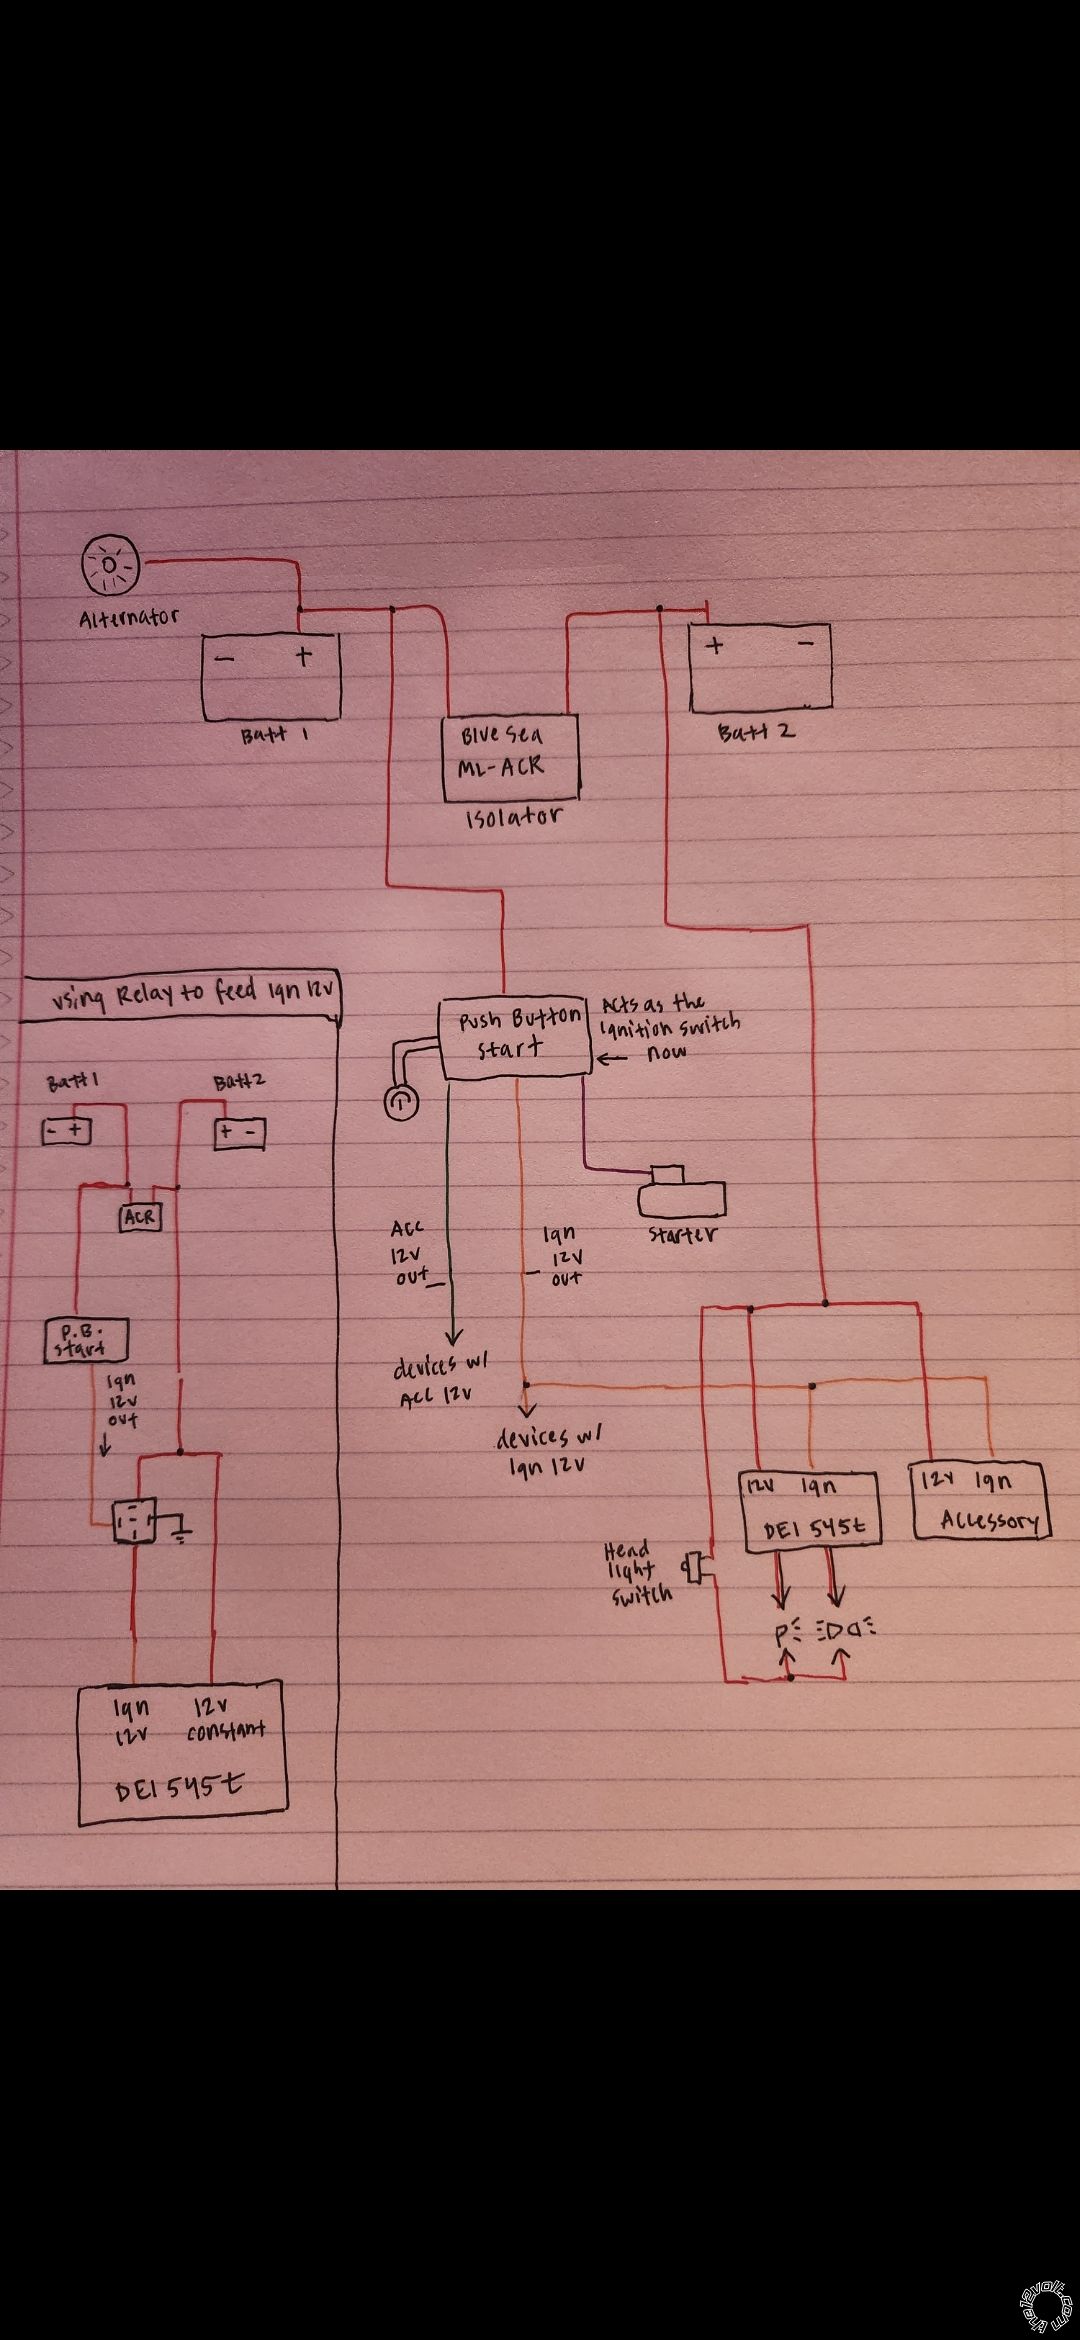 Alternator
- +
Batt 1
Blue Sea
ML-ACR
Isolator
+ -
Batt 2
using Relay to feed Ign 12v
Push Button
start
Acts as the
ignition switch
now
Batt 1
Batt 2
- +
+ -
ACR
starter
Acc
12v
out
Ign
12v
out
P.B.
start
Ign
12v
out
devices w/
ACC 12v
devices w/
Ign 12v
12v Ign
DEI 545t
12v Ign
Accessory
Head
light
switch
P
Ign 12v
12v constant
DEI 545t
the12volt.com